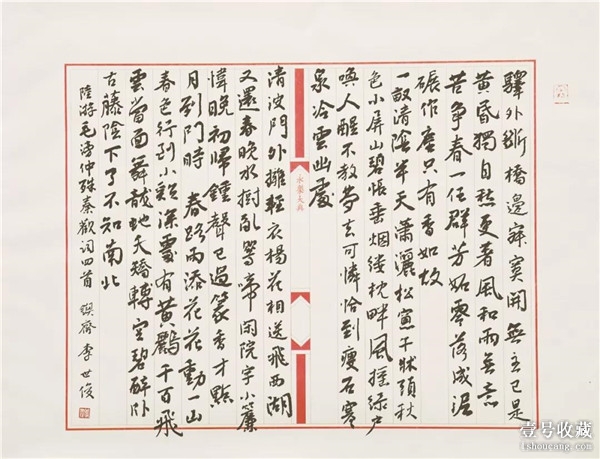 驛外斷橋邊寂寞開無主已是
黃昏獨自愁更著風和雨無意
苦爭春一任群芳妒零落成泥
碾作塵只有香如故
一畝清陰半天瀟灑松窗午牀頭秋
色小屏山碧帳垂烟縷枕畔風摇綠户
喚人醒不教夢去可憐恰到瘦石寒
泉冷雲幽處
水墨大典
清波門外擁輕衣楊花相送飛西湖
又還春晚水樹亂鶯啼閑院宇小簾
幃晚初歸鐘聲已過篆香才點
月到門時 春路雨添花花動一山
春色行到小溪深處有黃鸝千百飛
雲當面舞龍蛇夭矯轉空碧醉卧
古藤陰下了不知南北
陸游毛滂仲殊秦觀詞四首 李世俊
壹号收藏
1shoucang.com